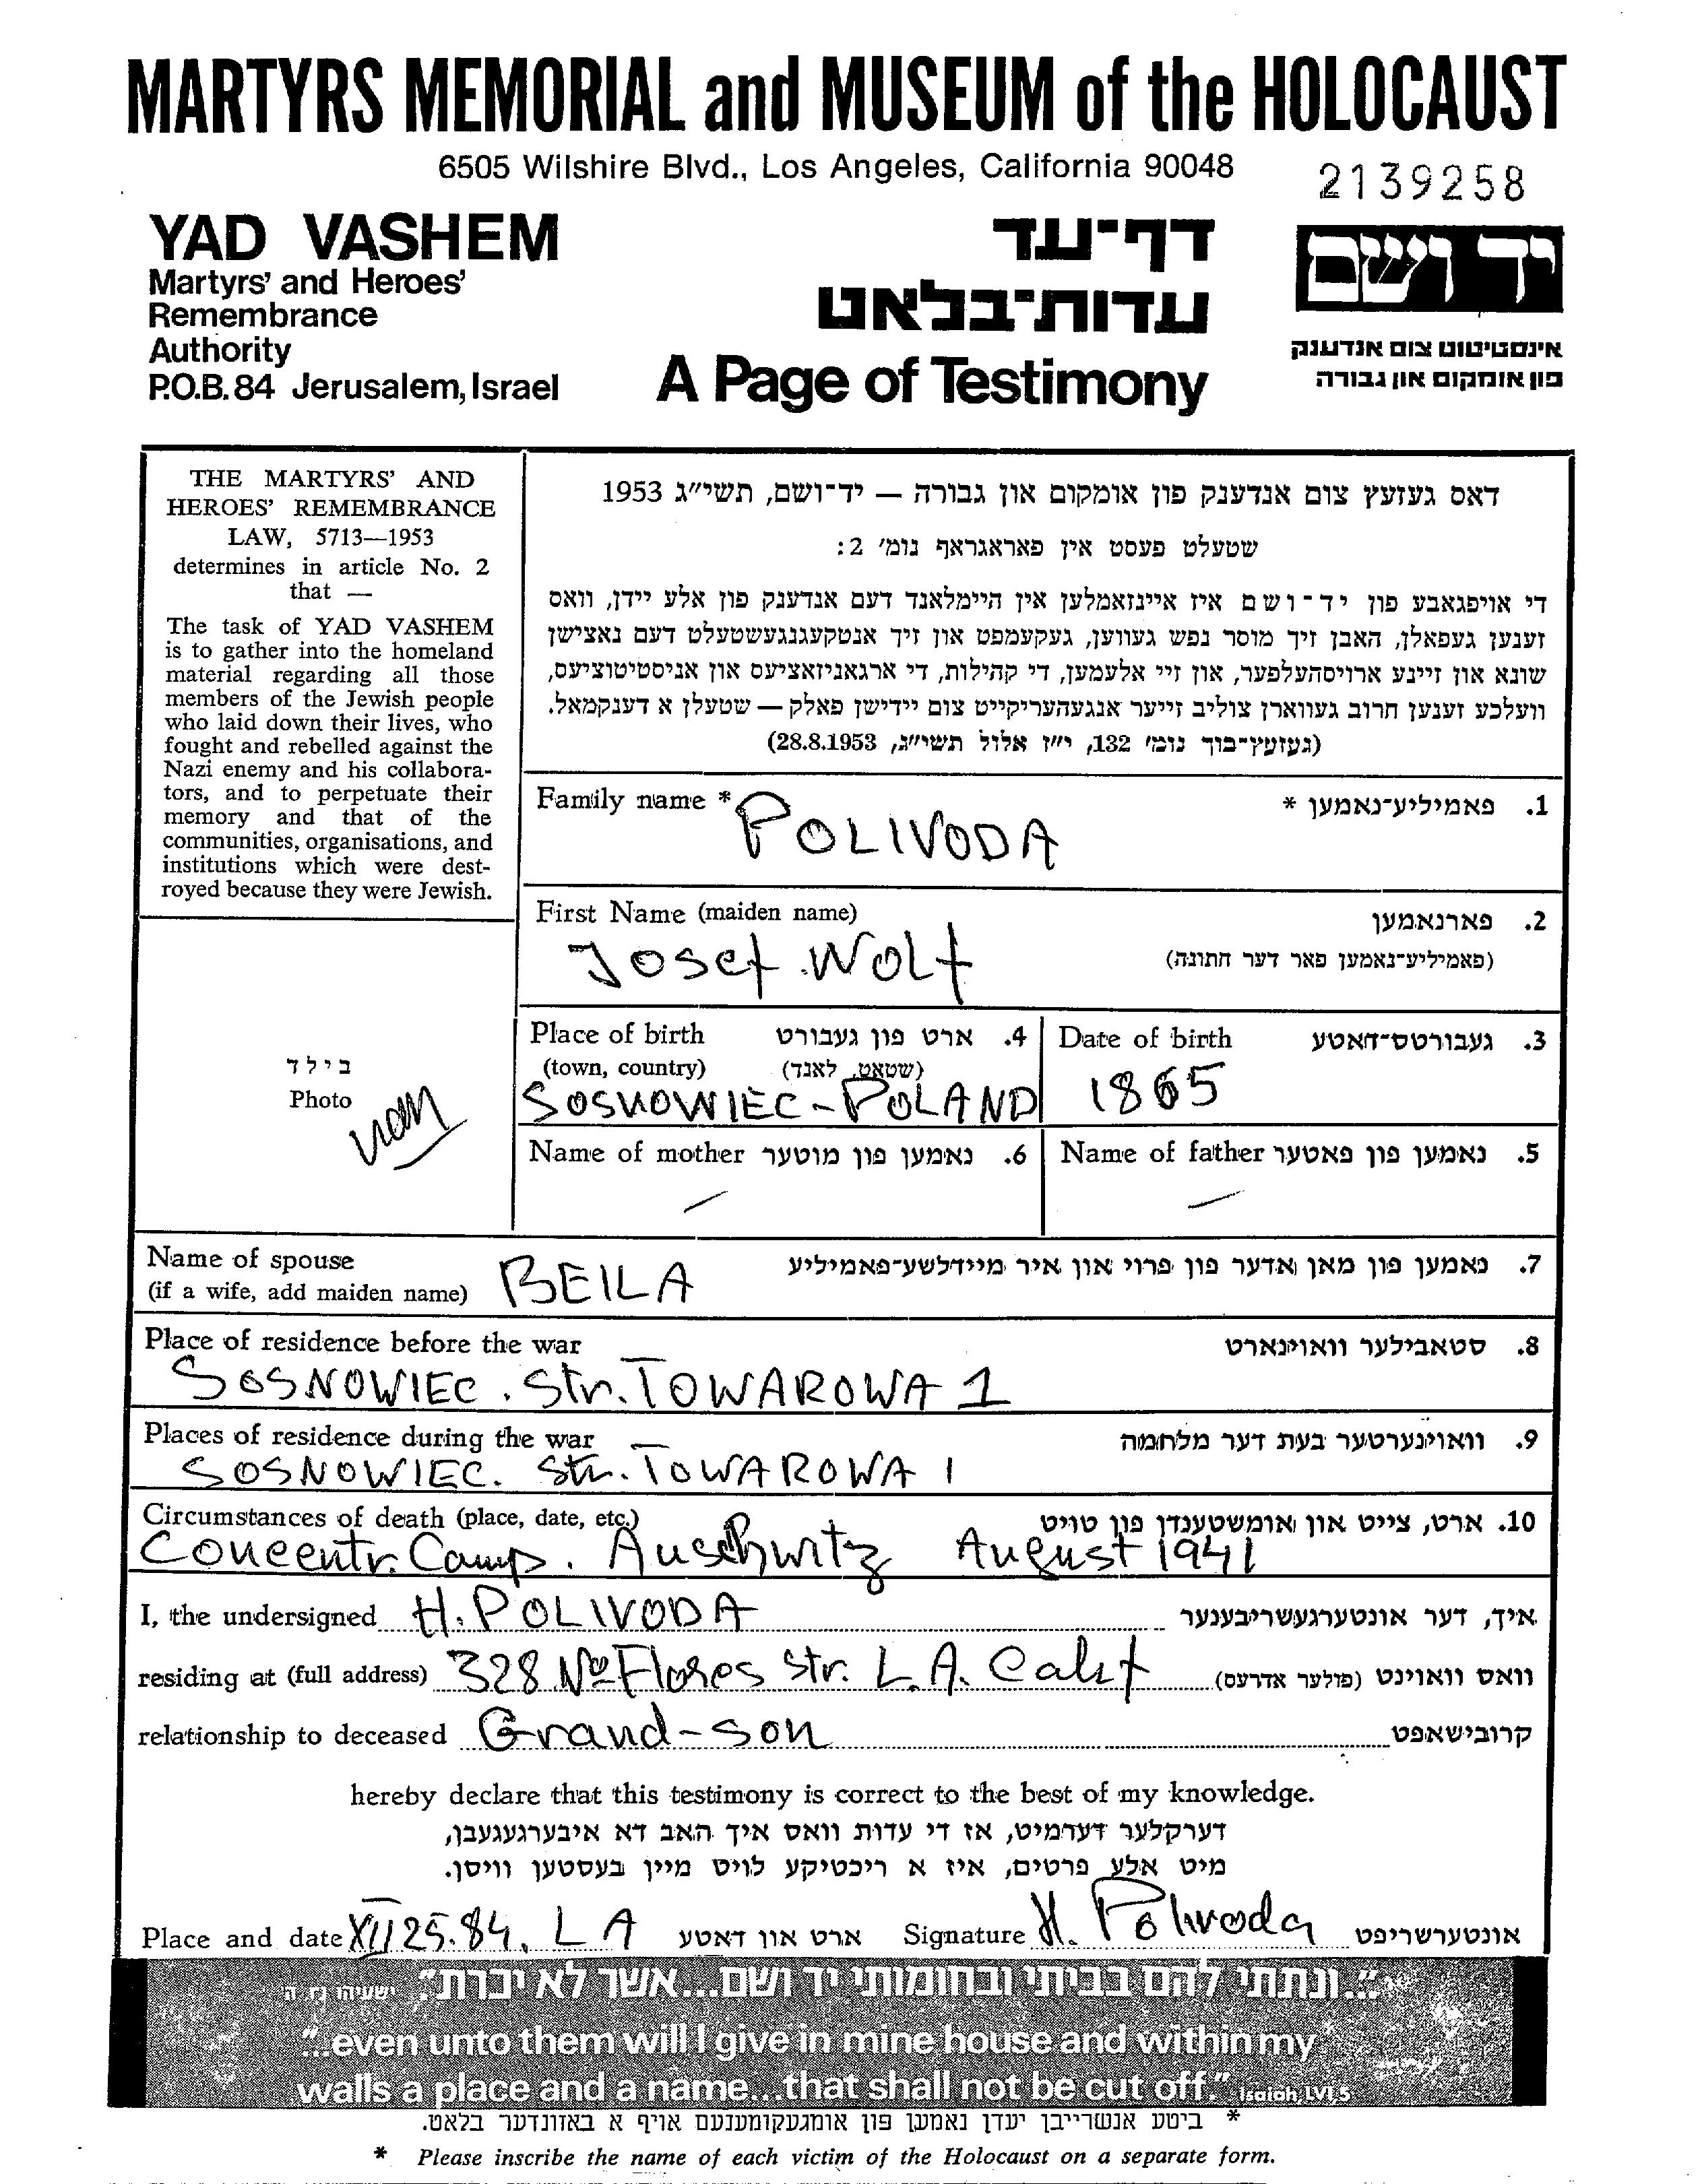 MARTYRS MEMORIAL and MUSEUM of the HOLOCAUST
6505 Wilshire Blvd., Los Angeles, California 90048
2139258
YAD VASHEM
Martyrs' and Heroes'
Remembrance
Authority
P.O.B. 84 Jerusalem, Israel
דף-עד
עדות-בלאט
A Page of Testimony
יד ושם
אינסטיטוט צום אנדענק
פון אומקום און גבורה
THE MARTYRS' AND
HEROES' REMEMBRANCE
LAW, 5713—1953
determines in article No. 2
that —
The task of YAD VASHEM
is to gather into the homeland
material regarding all those
members of the Jewish people
who laid down their lives, who
fought and rebelled against the
Nazi enemy and his collabora-
tors, and to perpetuate their
memory and that of the
communities, organisations, and
institutions which were dest-
royed because they were Jewish.
דאס געזעץ צום אנדענק פון אומקום און גבורה — יד-ושם, תשי"ג 1953
שטעלט פעסט אין פאראגראף נומ' 2:
די אויפגאבע פון יד-ושם איז איינזאמלען אין היימלאנד דעם אנדענק פון אלע יידן, וואס
זענען געפאלן, האבן זיך מוסר נפש געווען, געקעמפט און זיך אנטקעגנגעשטעלט דעם נאצישן
שונא און זיינע ארויסהעלפער, און זיי אלעמען, די קהילות, די ארגאניזאציעס און אניסטיטוציעס,
וועלכע זענען חרוב געווארן צוליב זייער אנגעהעריקייט צום יידישן פאלק — שטעלן א דענקמאל.
(געזעץ-בוך נומ' 132, י"ז אלול תשי"ג, 28.8.1953)
Family name * פאמיליע-נאמען * .1
POLIVODA
First Name (maiden name) פארנאמען .2
(פאמיליע-נאמען פאר דער חתונה)
Josef Wolf
Place of birth ארט פון געבורט .4
(town, country) (שטאט, לאנד)
SOSNOWIEC - POLAND
Date of birth געבורטס-דאטע .3
1865
בילד
Photo
Name of mother נאמען פון מוטער .6
Name of father נאמען פון פאטער .5
Name of spouse נאמען פון מאן אדער פון פרוי און איר מיידלשע-פאמיליע .7
(if a wife, add maiden name) BEILA
Place of residence before the war סטאבילער וואוינארט .8
SOSNOWIEC. Str. TOWAROWA 1
Places of residence during the war וואוינערטער בעת דער מלחמה .9
SOSNOWIEC. Str. TOWAROWA 1
Circumstances of death (place, date, etc.) ארט, צייט און אומשטענדן פון טויט .10
Concentr. Camp. Auschwitz August 1941
I, the undersigned H. POLIVODA איך, דער אונטערגעשריבענער
residing at (full address) 328 No Flores Str. L.A. Calif וואס וואוינט (פולער אדרעס)
relationship to deceased Grand-son קרובישאפט
hereby declare that this testimony is correct to the best of my knowledge.
דערקלער דערמיט, אז די עדות וואס איך האב דא איבערגעגעבן,
מיט אלע פרטים, איז א ריכטיקע לויט מיין בעסטען וויסן.
Place and date XII 25.84. LA ארט און דאטע Signature H. Polivoda אונטערשריפט
"...ונתתי להם בביתי ובחומותי יד ושם...אשר לא יכרת". ישעיהו נו, ה
"...even unto them will I give in mine house and within my
walls a place and a name...that shall not be cut off." Isaiah, LVI, 5
* ביטע אנשרייבן יעדן נאמען פון אומגעקומענעם אויף א באזונדער בלאט.
* Please inscribe the name of each victim of the Holocaust on a separate form.